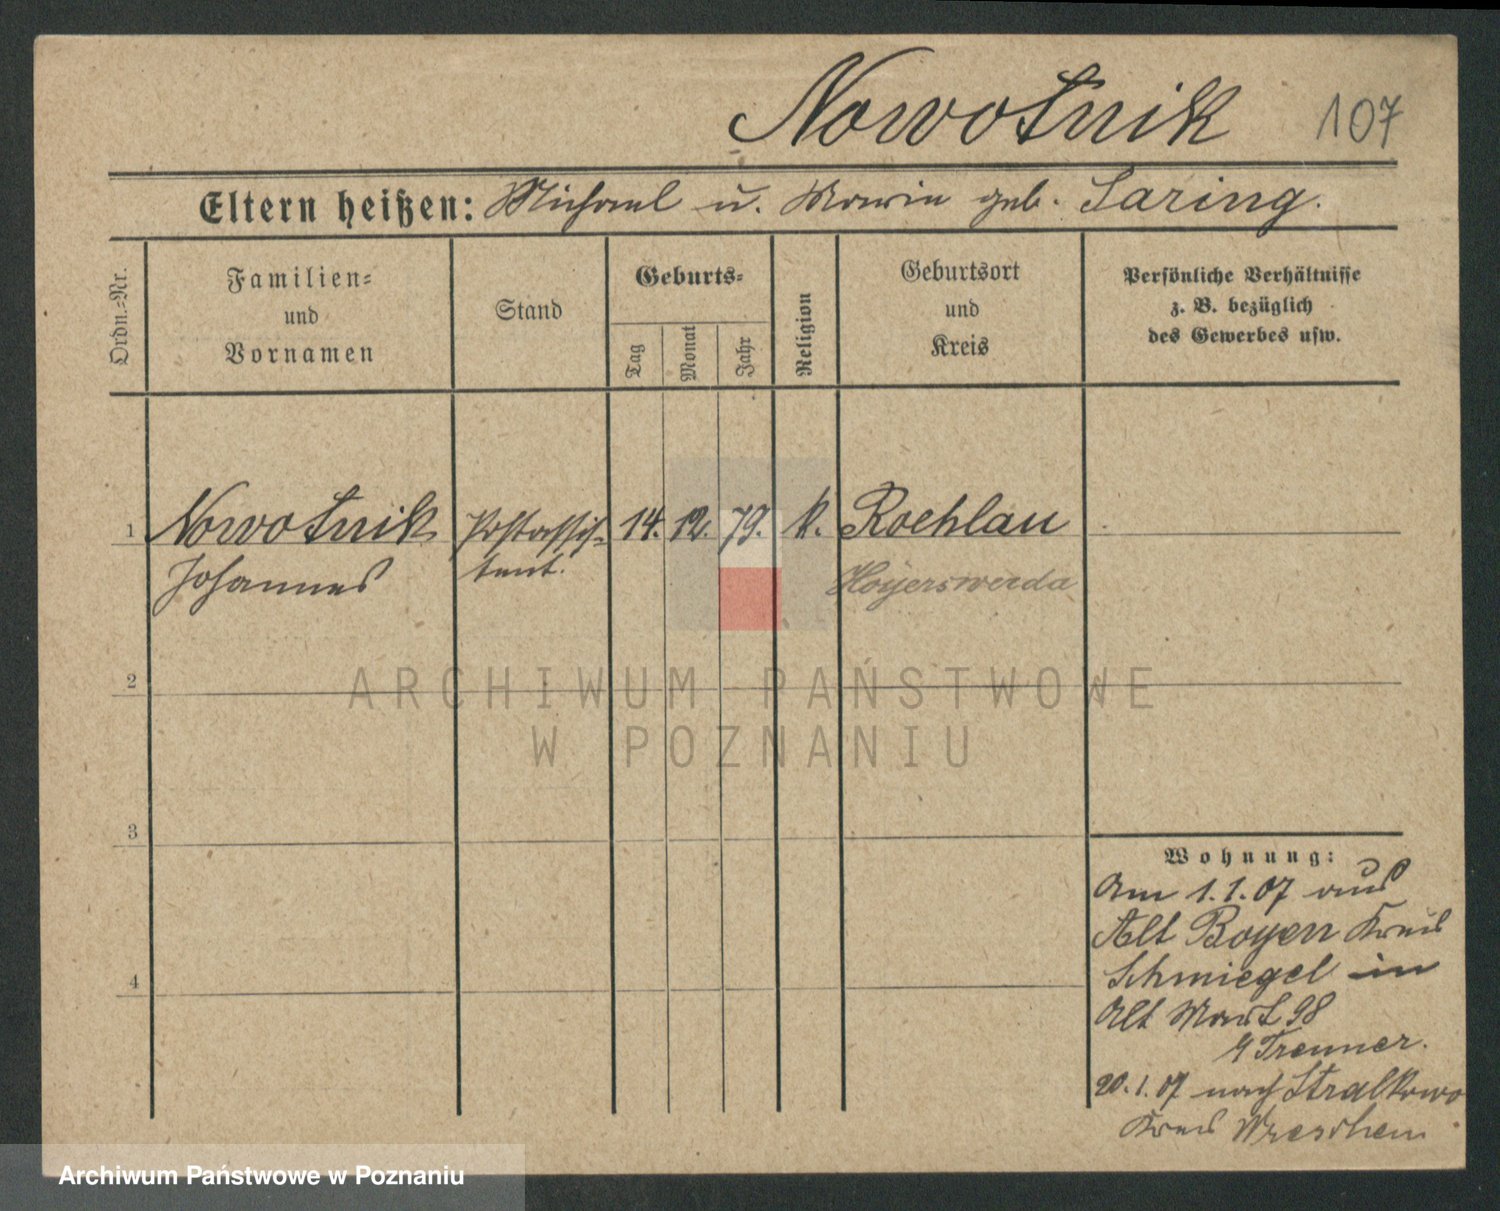 Nowotnik 107
Eltern heißen: Michael u. Marie geb. Saring.
Ordn.-Nr.
Familien-
und
Vornamen
Stand
Geburts-
Tag
Monat
Jahr
Religion
Geburtsort
und
Kreis
Persönliche Verhältnisse
z. B. bezüglich
des Gewerbes usw.
1 Nowotnik Postassis- 14. 12. 79. k. Rochlau
Johannes tent. Hoyerswerda
2
3
4
Wohnung:
Am 1.1.07 aus
Alt Boyen Kreis
Schmiegel in
Alt Markt 98
Trenner.
20.1.07 nach Stralkowo
Kreis Wreschen
ARCHIWUM PAŃSTWOWE
W POZNANIU
Archiwum Państwowe w Poznaniu